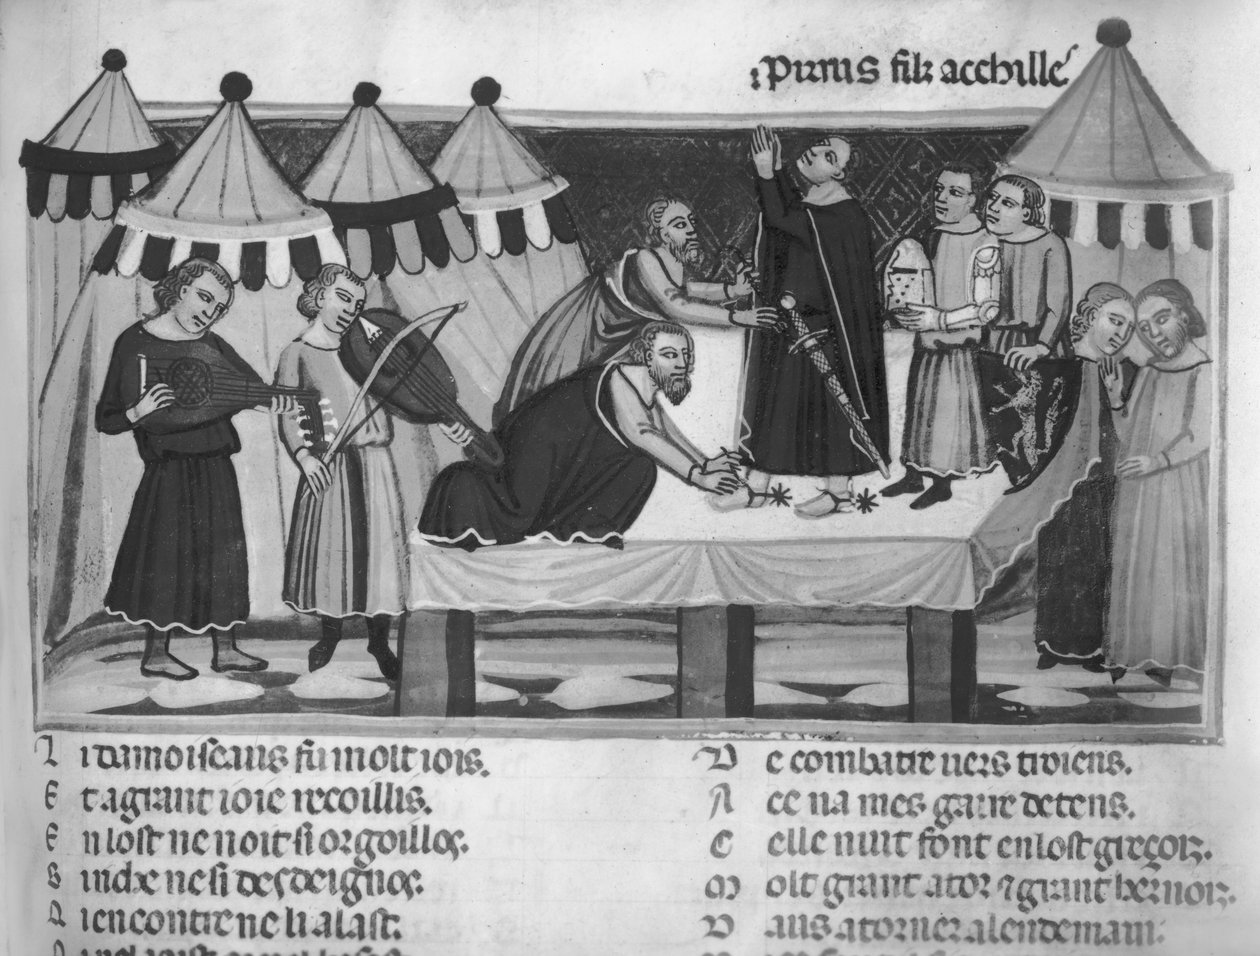 pirrus filz acchilles
Li damoiseaus fu molt iois.
Et a grant ioie recoillis.
En lost ne uoit si orgoillos.
Si riche ne si desdeignos.
Qi encontre ne li alast.
De combatre uers troiens.
Ace na mes garie de tens.
Celle nuit font en lost greçois.
Molt grant ator ⁊ grant hernois.
Vaus atorner alendemain.